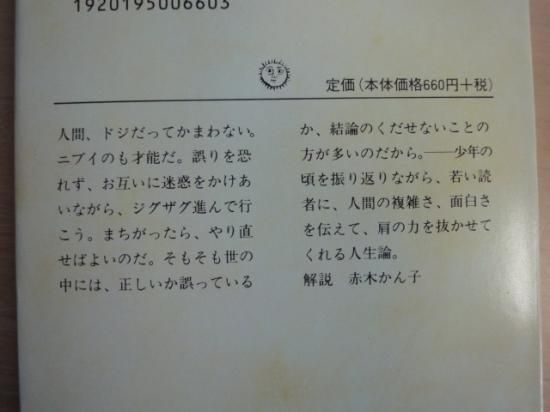 1920195006603
定価(本体価格660円+税)
人間、ドジだってかまわない。
ニブイのも才能だ。誤りを恐
れず、お互いに迷惑をかけあ
いながら、ジグザグ進んで行
こう。まちがったら、やり直
せばよいのだ。そもそも世の
中には、正しいか誤っている
か、結論のくだせないことの
方が多いのだから。──少年の
頃を振り返りながら、若い読
者に、人間の複雑さ、面白さ
を伝えて、肩の力を抜かせて
くれる人生論。
解説 赤木かん子